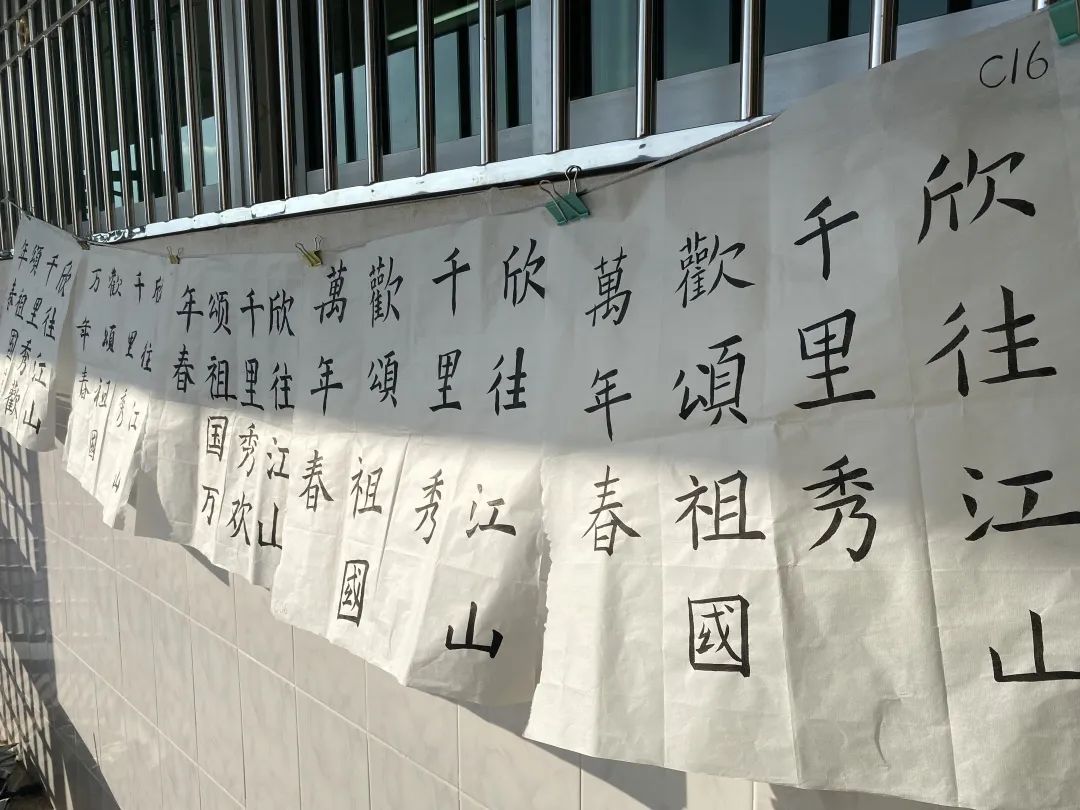 C16
欣往江山
千里秀
歡頌祖國
萬年春
欣往江山
千里秀
歡頌祖國
萬年春
欣往江山
千里秀欢
颂祖国万
年春
欣往江山
千里秀
歡頌祖國
万年春
欣往江山
千里秀歡
頌祖国
年春